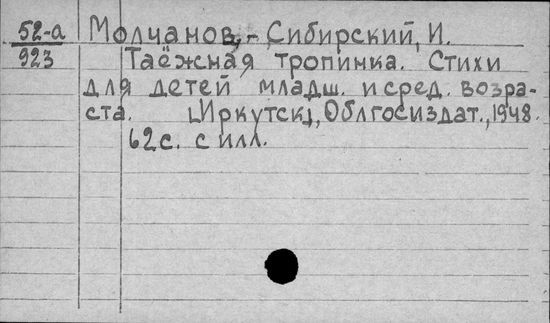 52-а Молчанов,-Сибирский, И.
923 Таёжная тропинка. Стихи
для детей младш. и сред. возра-
ста. [Иркутск], Облгосиздат., 1948.
62с. с илл.